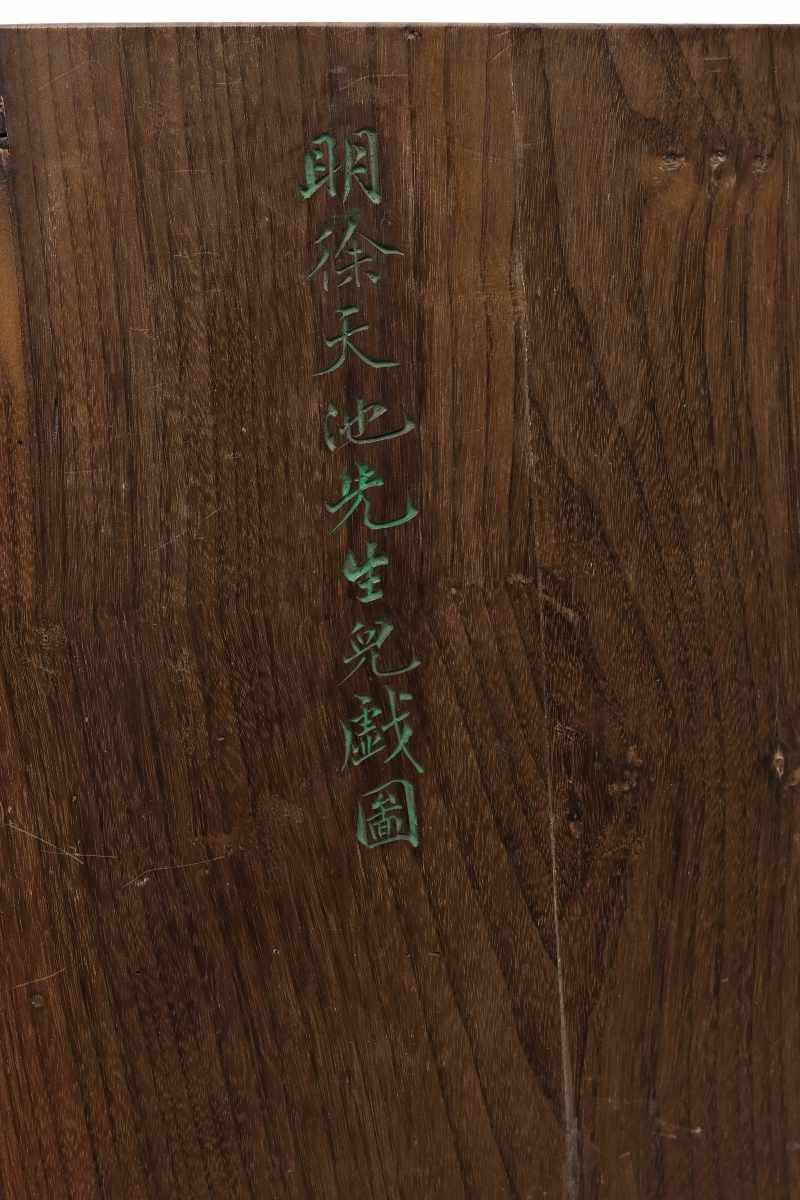 明徐天池先生兒戲圖